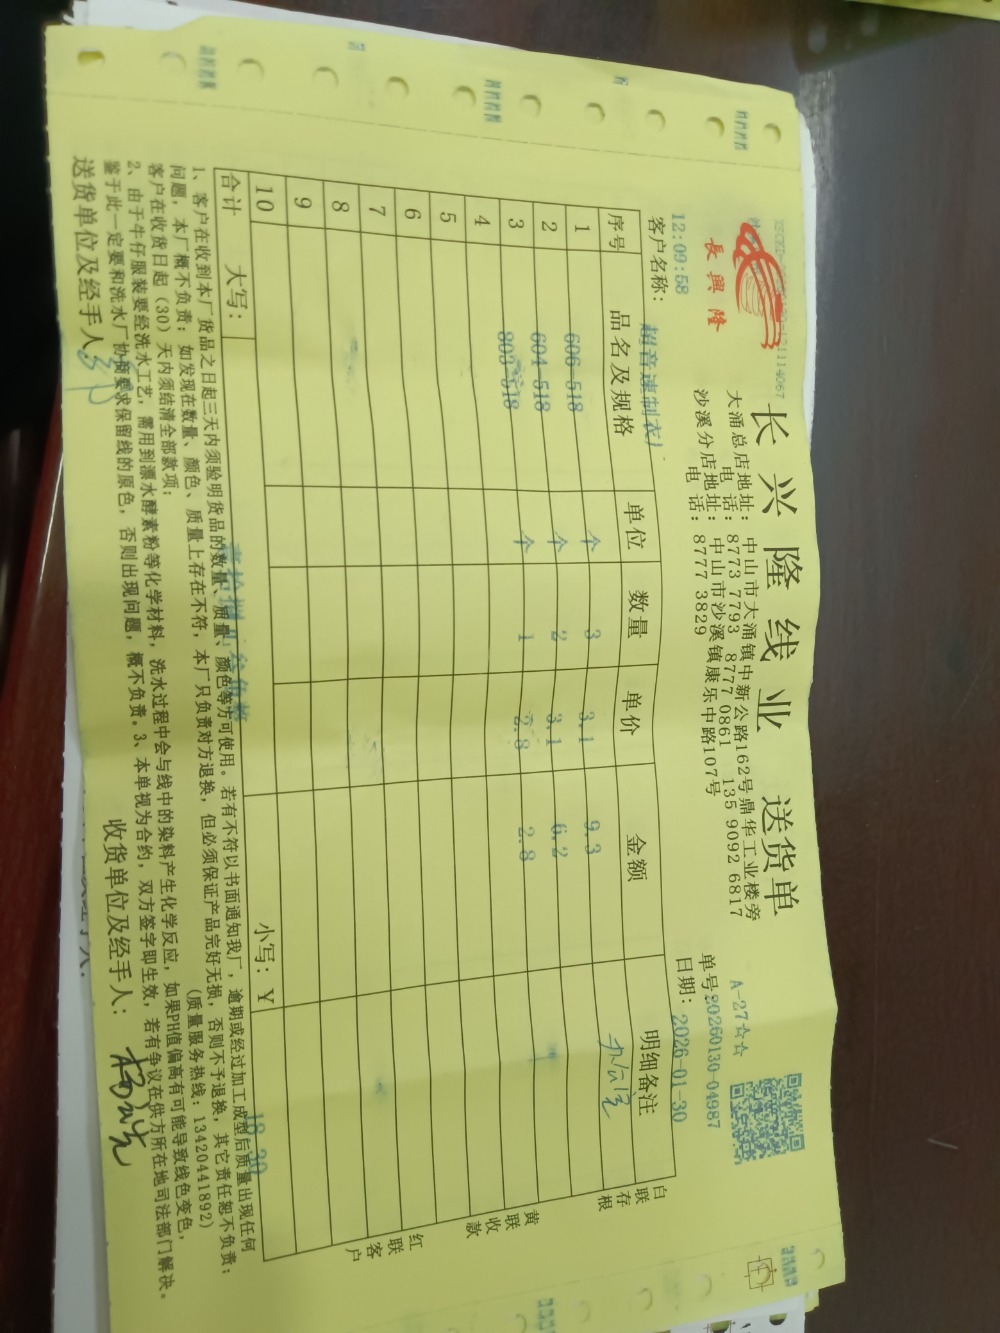 長興隆
长兴隆线业 送货单
A-27☆☆
大涌总店地址：中山市大涌镇中新公路162号鼎华工业楼旁
电 话：8773 7793 8777 0861 135 9092 6817
沙溪分店地址：中山市沙溪镇康乐中路107号
电 话：8777 3829
单号：20260130-04987
12:09:58
日期：2026-01-30
客户名称：超音速制衣厂
序号 品名及规格 单位 数量 单价 金额 明细备注
1 606-518 个 3 3.1 9.3
2 604-518 个 2 3.1 6.2
3 803-518 个 1 2.8 2.8
4
5
6
7
8
9
10
合计 大写： 小写：￥ 18.30
白联存根
黄联收款
红联客户
1、客户在收到本厂货品之日起三天内须验明货品的数量、质量、颜色等方可使用。若有不符以书面通知我厂，逾期或经过加工成型后质量出现任何
问题，本厂概不负责；如发现在数量、颜色、质量上存在不符，本厂只负责对方退换，但必须保证产品完好无损，否则不予退换，其它责任恕不负责；
客户在收货日起（30）天内须结清全部款项； （质量服务热线：13420441892）
2、由于牛仔服装要经洗水工艺，需用到漂水酵素粉等化学材料，洗水过程中会与线中的染料产生化学反应，如果PH值偏高有可能导致线色变色，
鉴于此一定要和洗水厂协商要求保留线的原色，否则出现问题，概不负责。3、本单视为合约，双方签字即生效，若有争议在供方所在地司法部门解决。
送货单位及经手人： 收货单位及经手人：